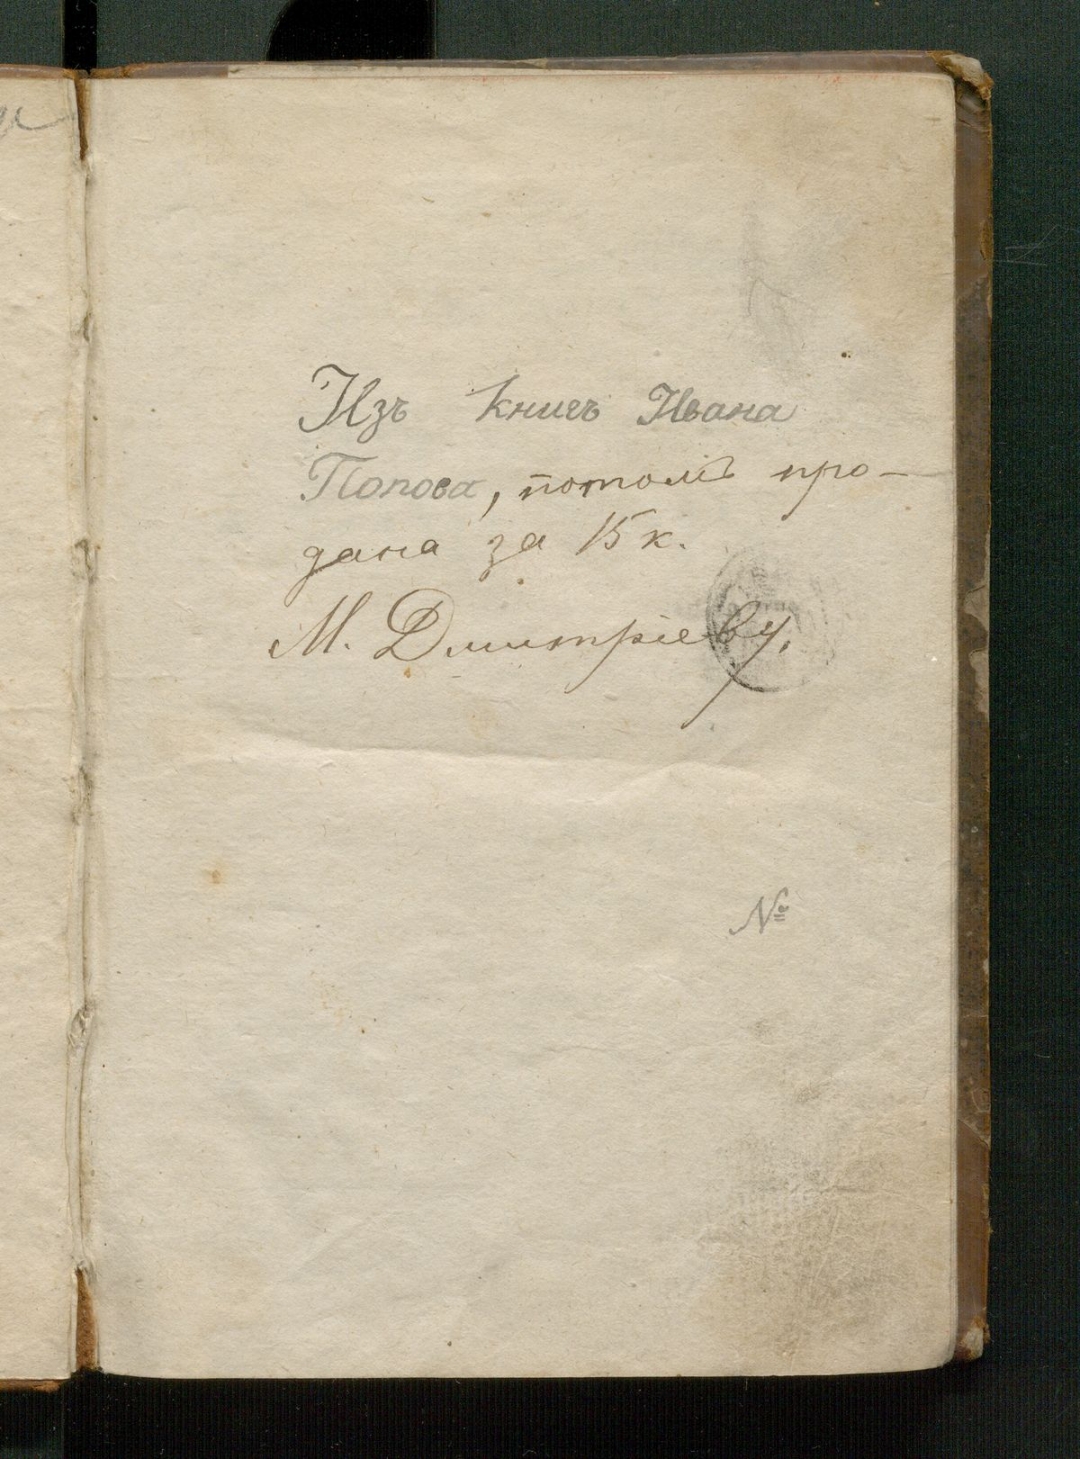 Изъ книгъ Ивана
Попова, потомъ про-
дана за 15 к.
М. Дмитріеву.
№